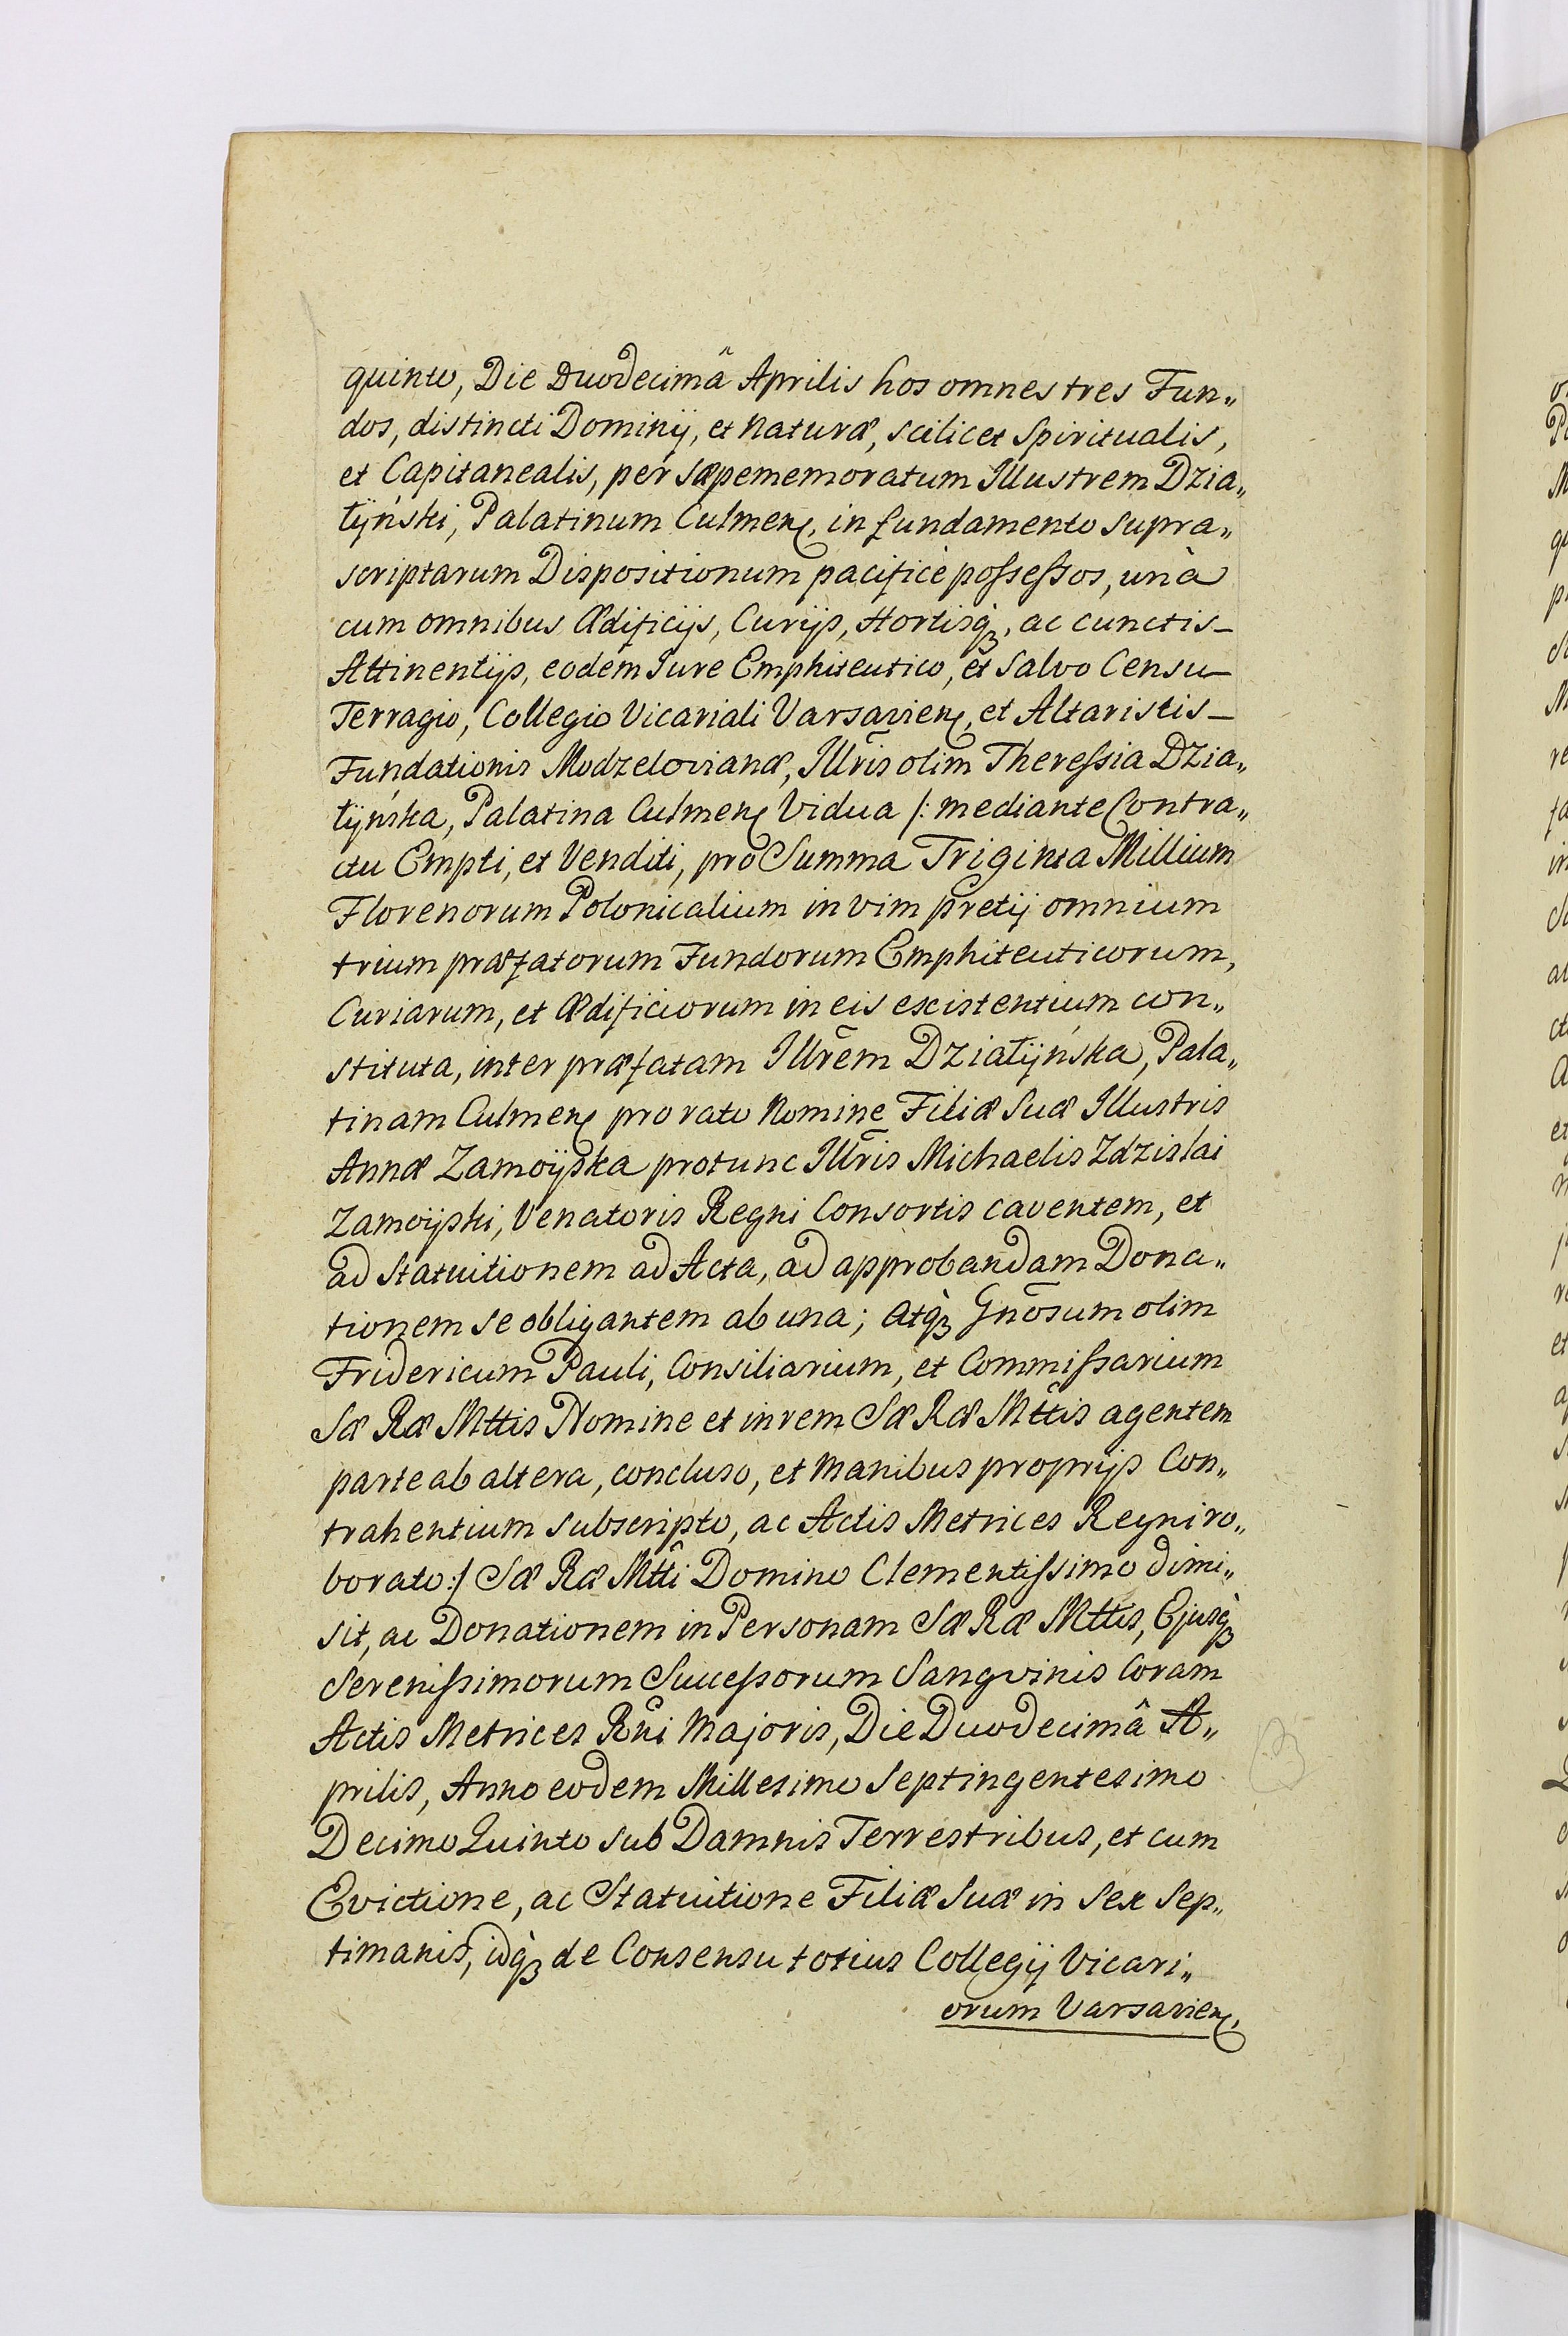 quinto, Die Duodecimâ Aprilis hos omnes tres Fun„
dos, distincti Dominij, et Naturæ, scilicet Spiritualis,
et Capitanealis, per sæpememoratum Illustrem Dzia„
łyński, Palatinum Culmen, in fundamento supra„
scriptarum Dispositionum pacificè poſseſsos, unà
cum omnibus Ædificijs, Curijs, Hortisq̀ꝫ, ac cunctis_
Attinentijs, eodem Iure Emphiteutico, et Salvo Censu_
Terragio, Collegio Vicariali Varsavien, et Altaristis_
Fundationis Modzelovianæ, Illr̃is olim Thereſsia Dzia„
łyńska, Palatina Culmen Vidua /: mediante Contra„
ctu Empti, et Venditi, pro Summa Triginta Millium
Florenorum Polonicalium in vim pretij omnium
trium præfatorum Fundorum Emphiteuticorum,
Curiarum, et Ædificiorum in eis existentium con„
stituta, inter præfatam Illr̃em Działyńska, Pala„
tinam Culmen pro rato Nomine Filiæ Suæ Illustris
Annæ Zamoÿska protunc Illr̃is Michaelis Zdzislai
Zamoÿski, Venatoris Regni Consortis caventem, et
ad Statuitionem ad Acta, ad approbandam Dona„
tionem se obligantem ab una; Atq̀ꝫ Gnõsum olim
Fridericum Pauli, Consiliarium, et Commiſsarium
Sæ Ræ Mttis Nomine et in rem Sæ Ræ Mttis agentem
parte ab altera, concluso, et Manibus proprijs Con„
trahentium subscripto, ac Actis Metrices Regni ro„
borato :/ Sæ Ræ Mtti Domino Clementiſsimo dimi„
sit, ac Donationem in Personam Sæ Ræ Mttis, Ejusq̀ꝫ
Sereniſsimorum Succeſsorum Sangvinis coram
Actis Metrices Rñi Majoris, Die Duodecimâ A„
prilis, Anno eodem Millesimo Septingentesimo
Decimo Quinto sub Damnis Terrestribus, et cum
Evictione, ac Statuitione Filiæ Suæ in Sex Sep„
timanis, idq̀ꝫ de Consensu totius Collegij Vicari„
orum Varsavien,